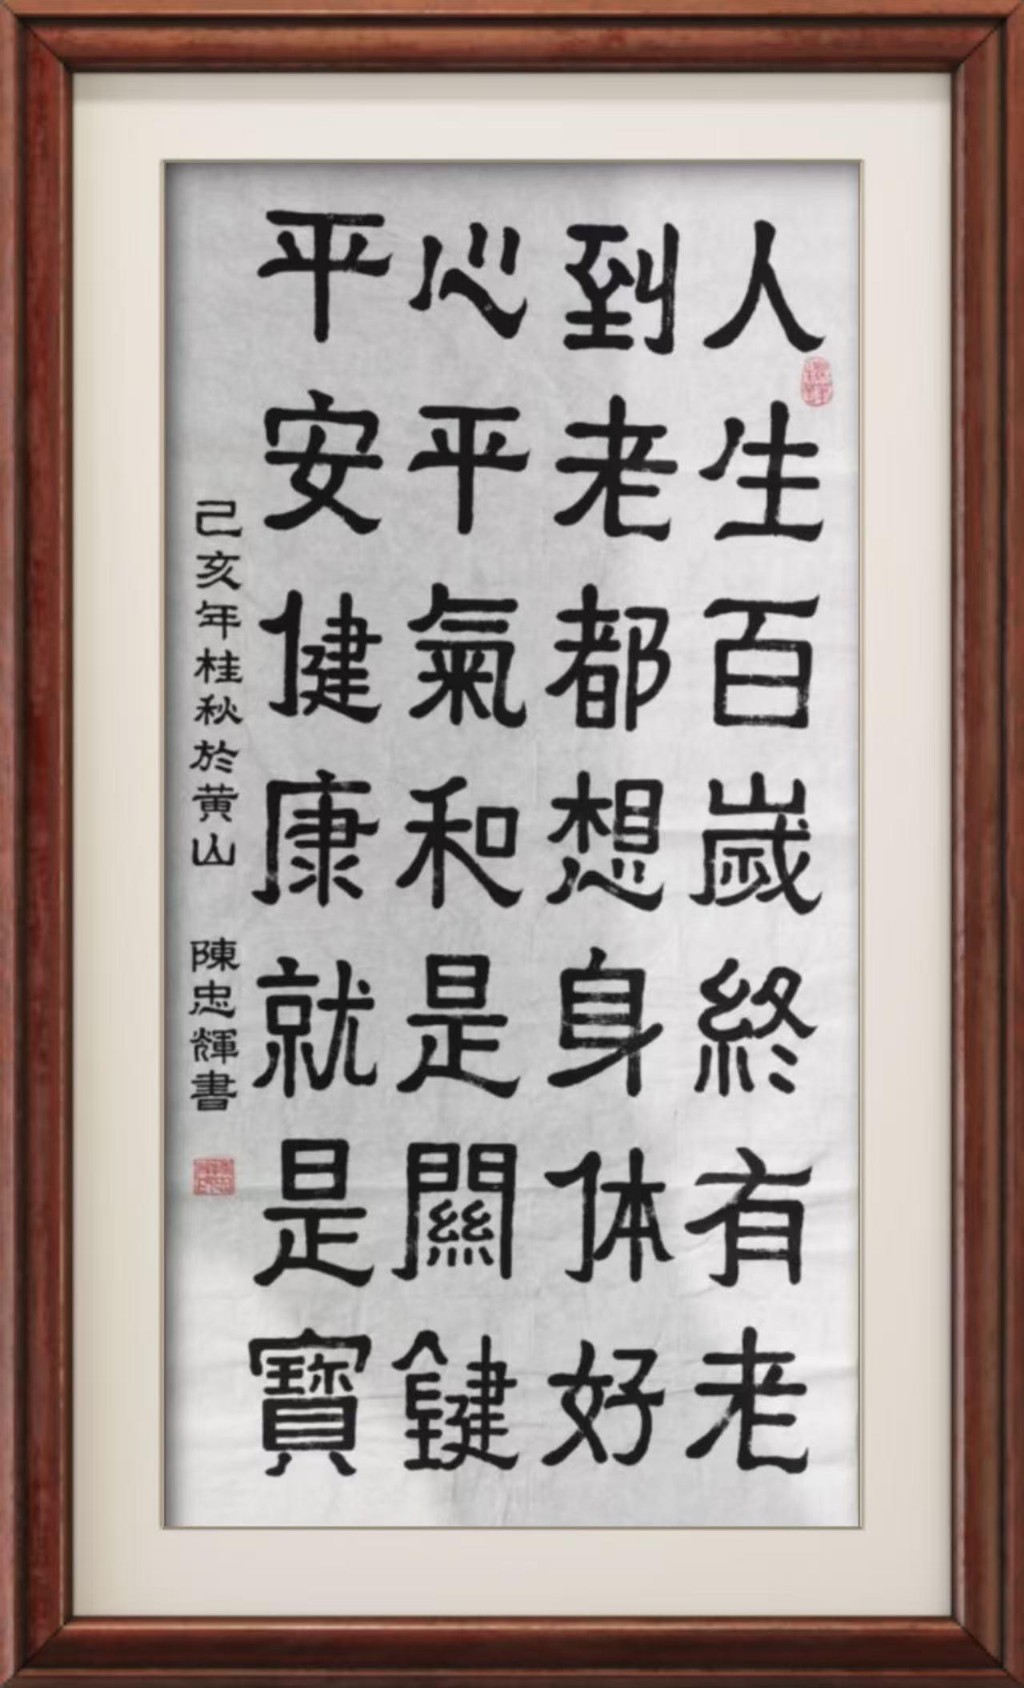 人生百歲終有老
到老都想身体好
心平氣和是關鍵
平安健康就是寶
己亥年桂秋於黄山 陳忠輝書